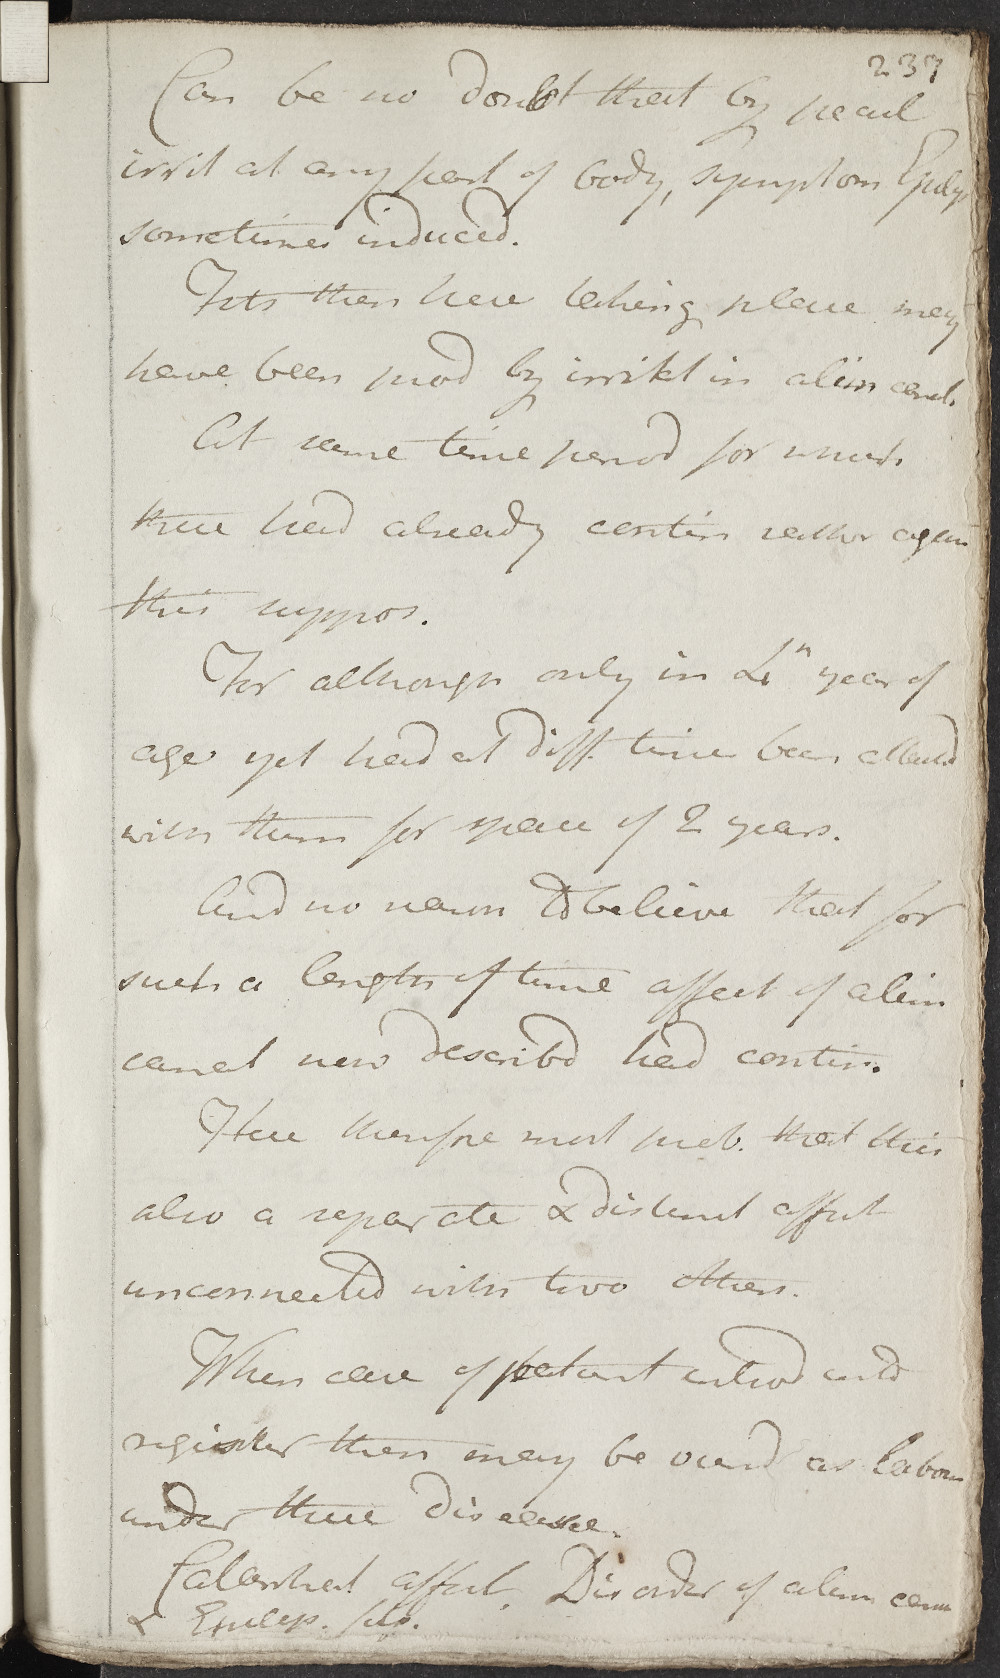 237
Can be no doubt that by pecul
irrit at any part of body, symptom Epilep
sometimes induced.
Fits then here taking place may
have been prod by irritat in alim canal.
At same time period for which
these had already contin rather again
this suppos.
For although only in 4th year of
age yet had at diff. time been affected
with them for space of 2 years.
And no reason to believe that for
such a length of time affect of alim
canal now describd had contin.
Here therefore most prob. that this
also a separate & distinct affect
unconnected with two others.
When case of patient introd into
register then may be ound as labour
under three disease.
Catarrhal affect, Disorder of alim canal
& Epilep. fits.